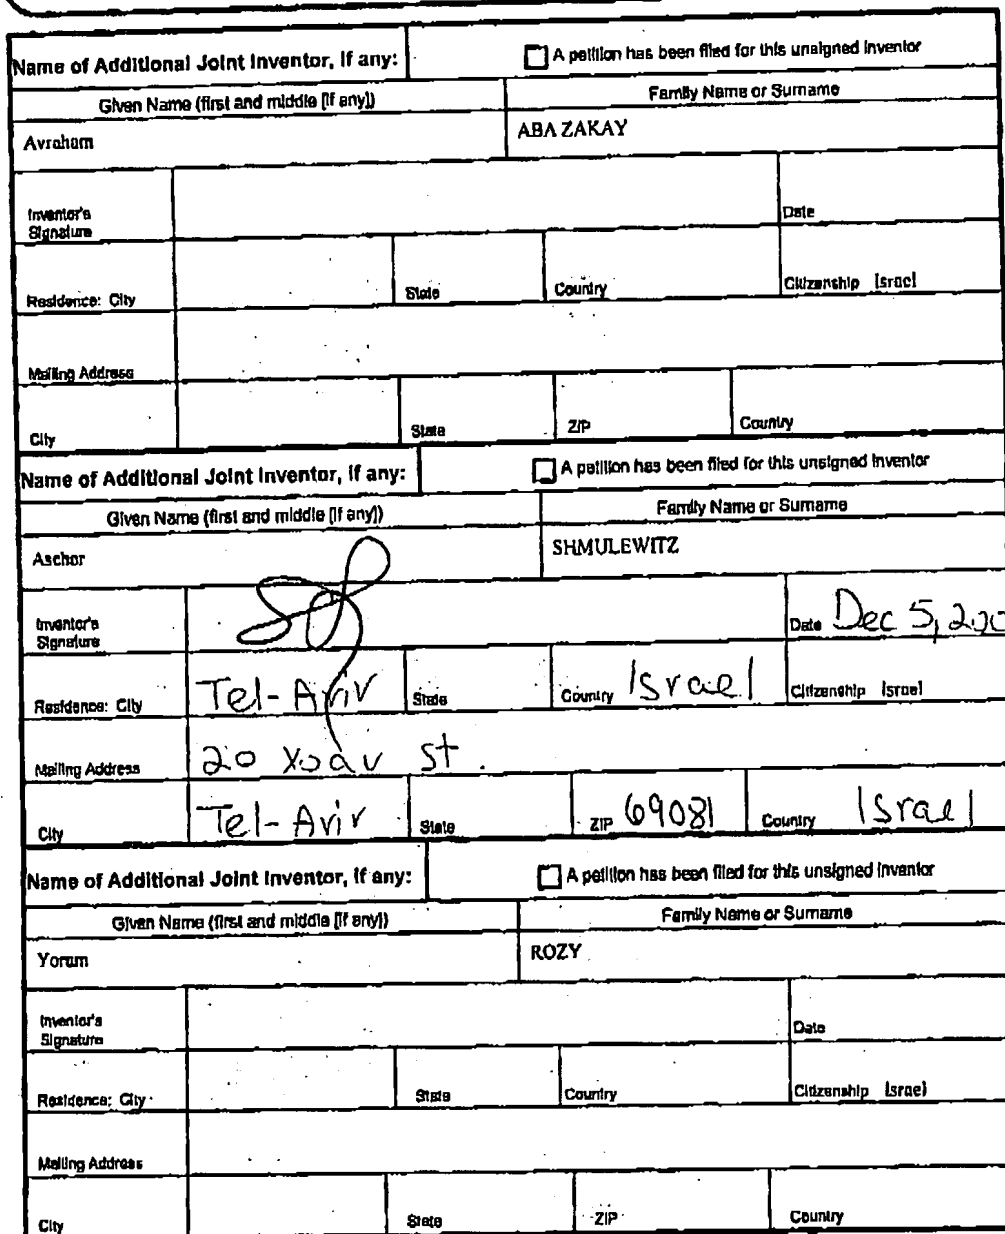 Name of Additional Joint Inventor, if any: A petition has been filed for this unsigned inventor
Given Name (first and middle [if any]) Family Name or Surname
Avraham ABA ZAKAY
Inventor's Signature Date
Residence: City State Country Citizenship Israel
Mailing Address
City State ZIP Country
Name of Additional Joint Inventor, if any: A petition has been filed for this unsigned inventor
Given Name (first and middle [if any]) Family Name or Surname
Ascher SHMULEWITZ
Inventor's Signature Date Dec 5,
Residence: City Tel-Aviv State Country Israel Citizenship Israel
Mailing Address 20 Yoav St.
City Tel-Aviv State ZIP 69081 Country Israel
Name of Additional Joint Inventor, if any: A petition has been filed for this unsigned inventor
Given Name (first and middle [if any]) Family Name or Surname
Yoram ROZY
Inventor's Signature Date
Residence: City State Country Citizenship Israel
Mailing Address
City State ZIP Country